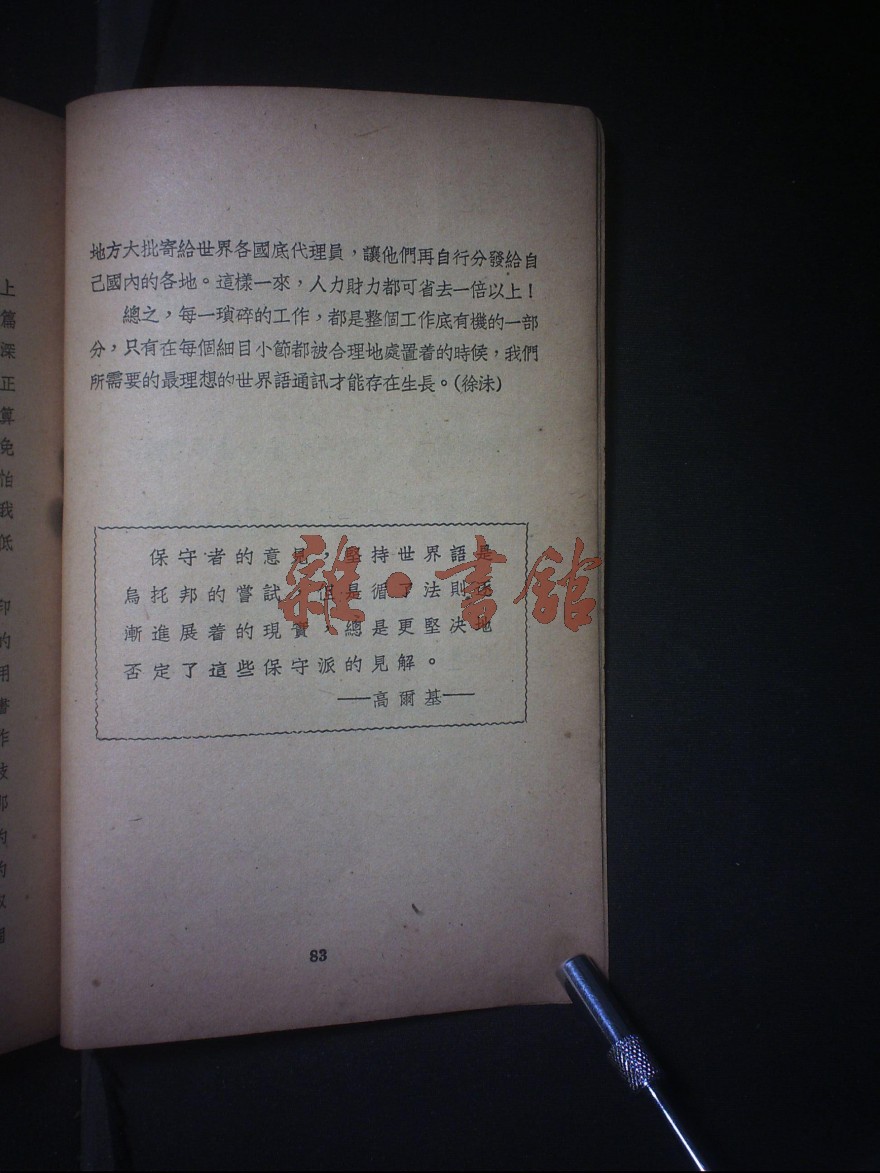 地方大批寄給世界各國底代理員，讓他們再自行分發給自
己國內的各地。這樣一來，人力財力都可省去一倍以上！
總之，每一瑣碎的工作，都是整個工作底有機的一部
分，只有在每個細目小節都被合理地處置着的時候，我們
所需要的最理想的世界語通訊才能存在生長。(徐沫)
保守者的意見，堅持世界語是
烏托邦的嘗試，但是循了法則逐
漸進展着的現實，總是更堅决地
否定了這些保守派的見解。
——高爾基——
83
雜·書館
上
篇
深
正
算
免
怕
我
低
印
的
用
書
作